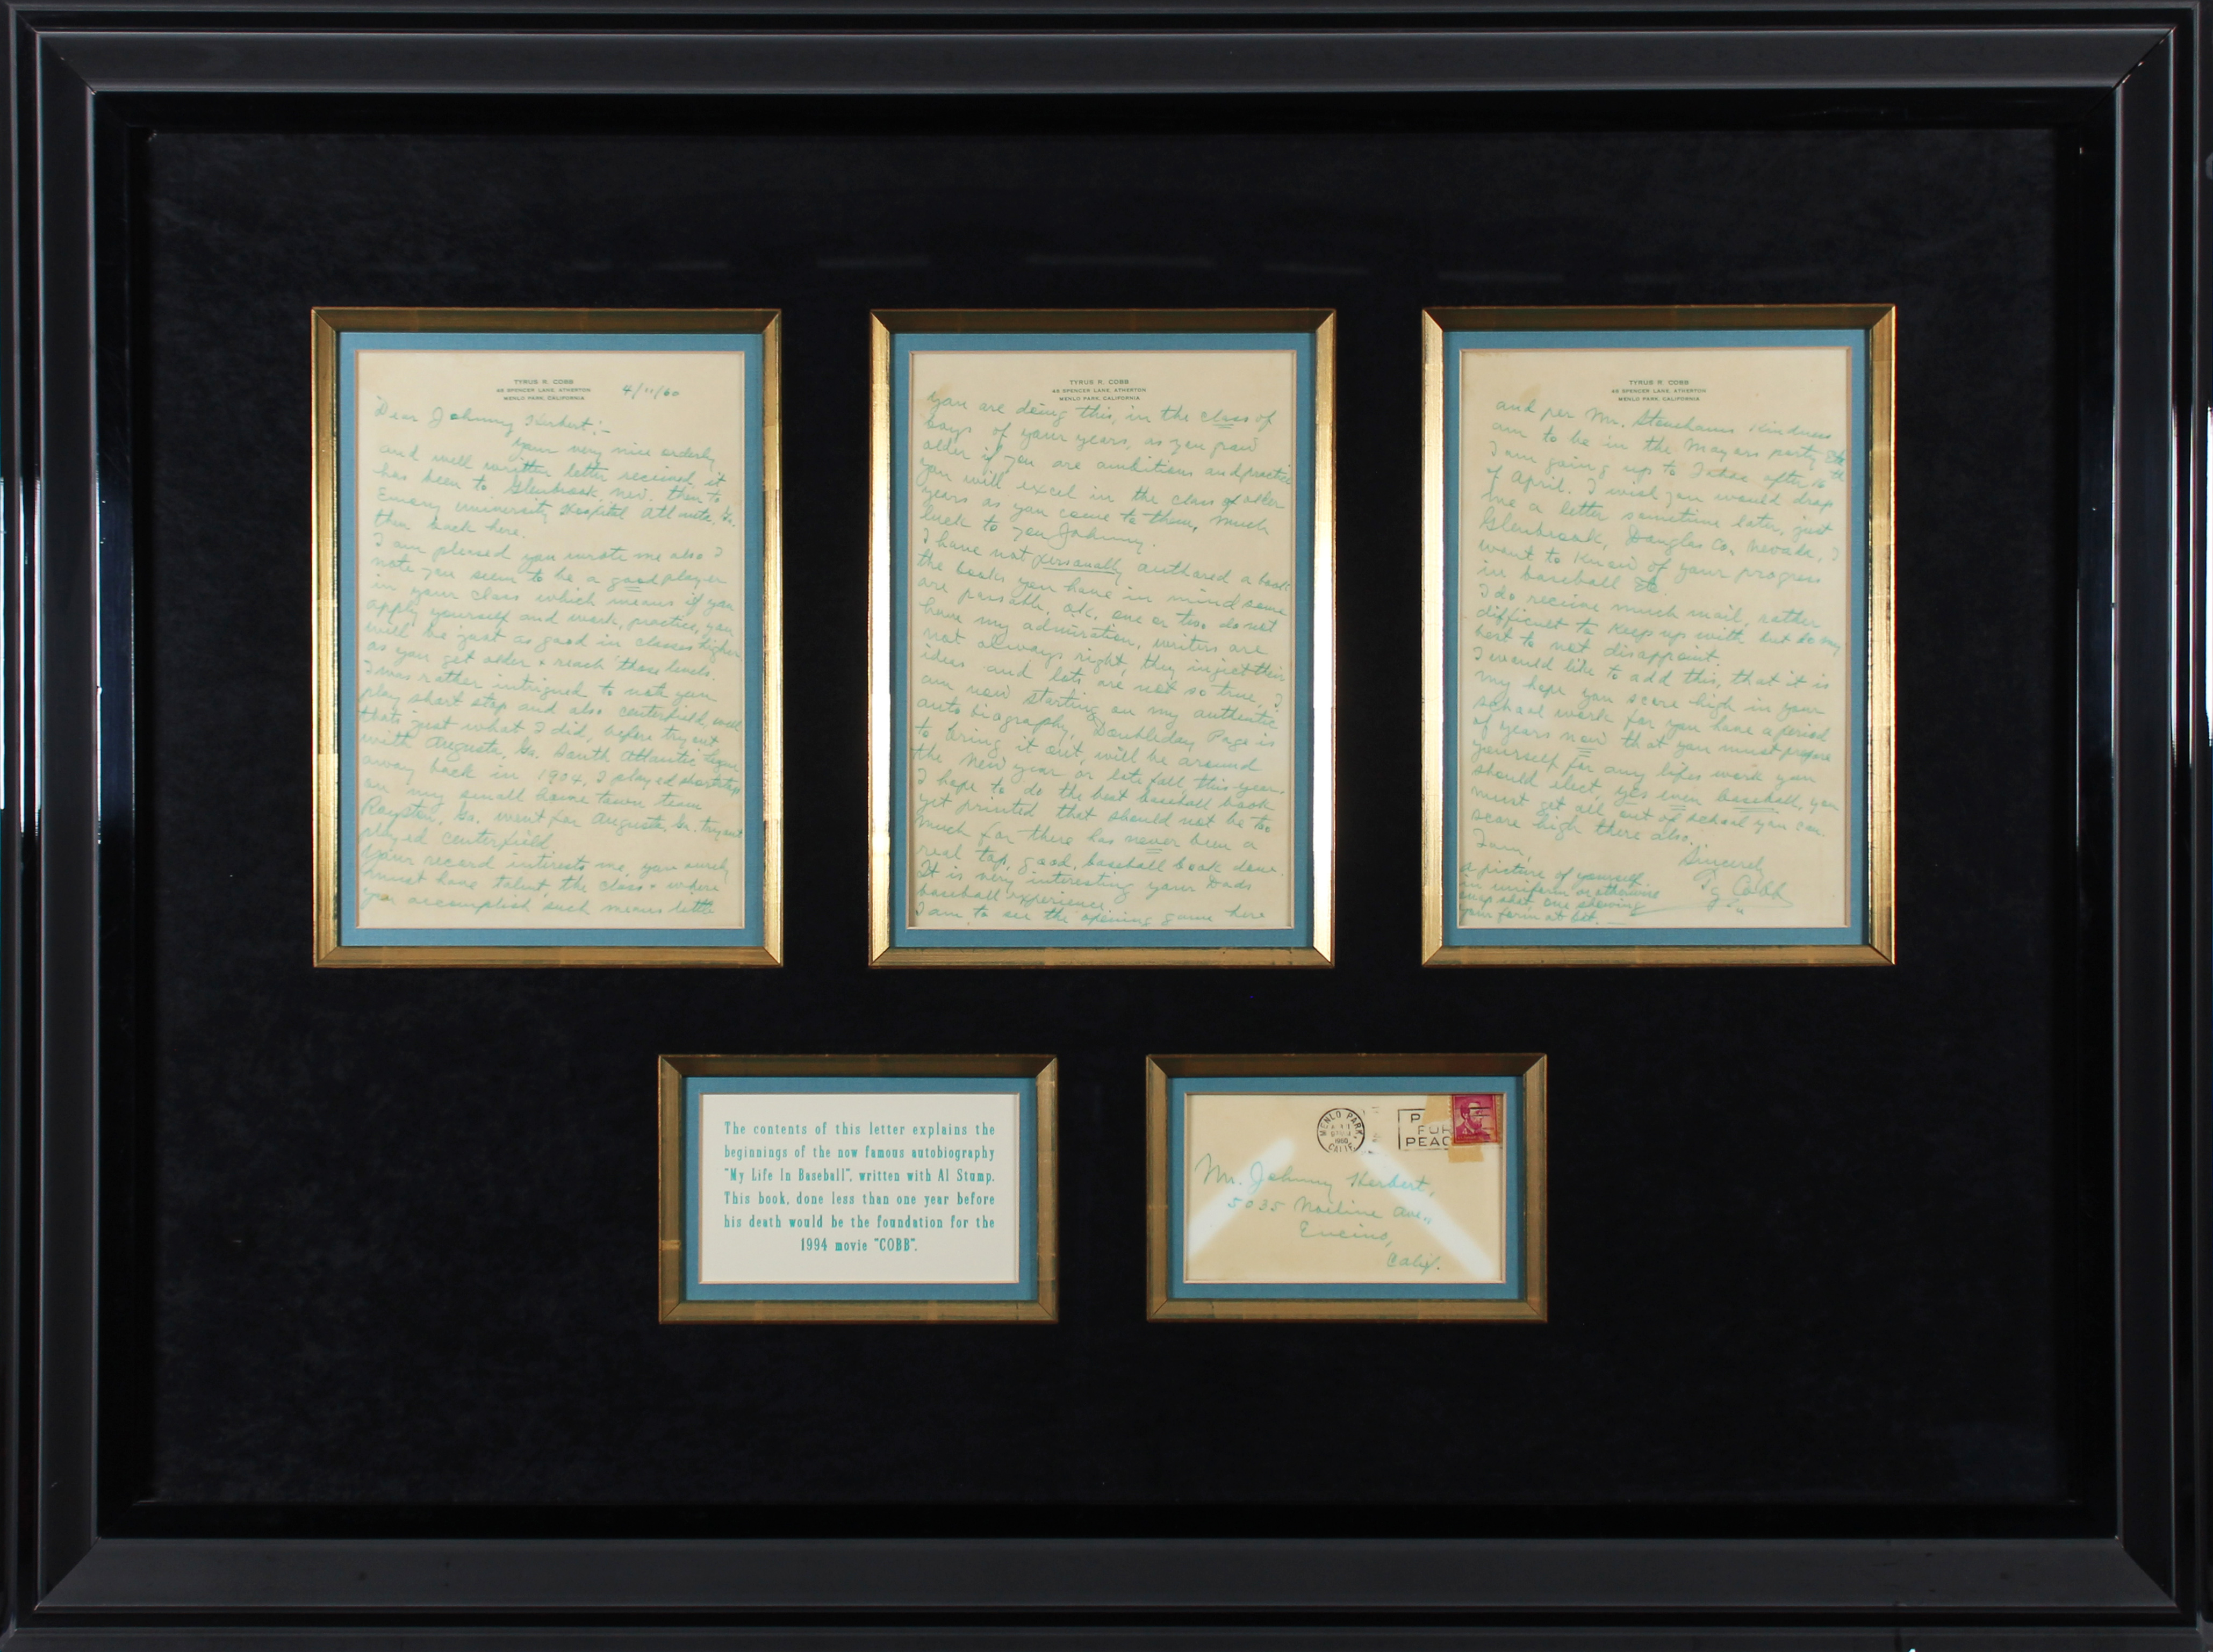 TYRUS R. COBB
48 SPENCER LANE, ATHERTON
MENLO PARK, CALIFORNIA
4/11/60
Dear Johnny Herbert:-
your very nice orderly
and well written letter received, it
has been to Glenbrook, Nev. then to
Emory University Hospital Atlanta, Ga.
then back here.
I am pleased you wrote me also I
note you seem to be a good player
in your class which means if you
apply yourself and work, practice, you
will be just as good in classes higher
as you get older + reach those levels.
I was rather intrigued to note you
play short stop and also centerfield, well
thats just what I did, before try out
with Augusta, Ga. South Atlantic
away back in 1904, I played shortstop
on my small home town team
Royston, Ga. went for Augusta, Ga. tryout
played centerfield.
Your record interests me, you surely
must have talent, the class + where
you accomplish such means little
TYRUS R. COBB
48 SPENCER LANE, ATHERTON
MENLO PARK, CALIFORNIA
you are doing this, in the class of
boys of your years, as you grow
older if you are ambitious and practice
you will excel in the class of older
years as you come to them, much
luck to you Johnny.
I have not personally authored a book
the books you have in mind some
are passable, ok. one or two do not
have my admiration, writers are
not always right, they inject their
ideas and lots are not so true, I
am now starting on my authentic
auto biography, Doubleday Page is
to bring it out, will be around
the New year or late fall, this year.
I hope to do the best baseball book
yet printed that should not be too
much for there has never been a
real top, good, baseball book done.
It is very interesting your Dads
baseball experience.
I am to see the opening game here
TYRUS R. COBB
48 SPENCER LANE, ATHERTON
MENLO PARK, CALIFORNIA
and per Mr. Stonehams kindness
am to be in the Mayors party Etc
I am going up to Tahoe after 16th
of April. I wish you would drop
me a letter sometime later, just
Glenbrook, Douglas Co, Nevada, I
want to know of your progress
in baseball Etc.
I do receive much mail, rather
difficult to keep up with but do my
best to not disappoint.
I would like to add this, that it is
my hope you score high in your
school work for you have a period
of years now that you must prepare
yourself for any lifes work you
should elect yes even baseball, you
must get all out of school you can.
score high there also.
I am,
Sincerely
Ty Cobb
a picture of yourself
in uniform or otherwise
snap shot, one showing
your form at bat.
The contents of this letter explains the
beginnings of the now famous autobiography
"My Life In Baseball", written with Al Stump.
This book, done less than one year before
his death would be the foundation for the
1994 movie "COBB".
MENLO PARK,
1960
CALIF.
P
FOR
PEAC
Mr. Johnny Herbert,
5035 Ave.,
Encino,
Calif.